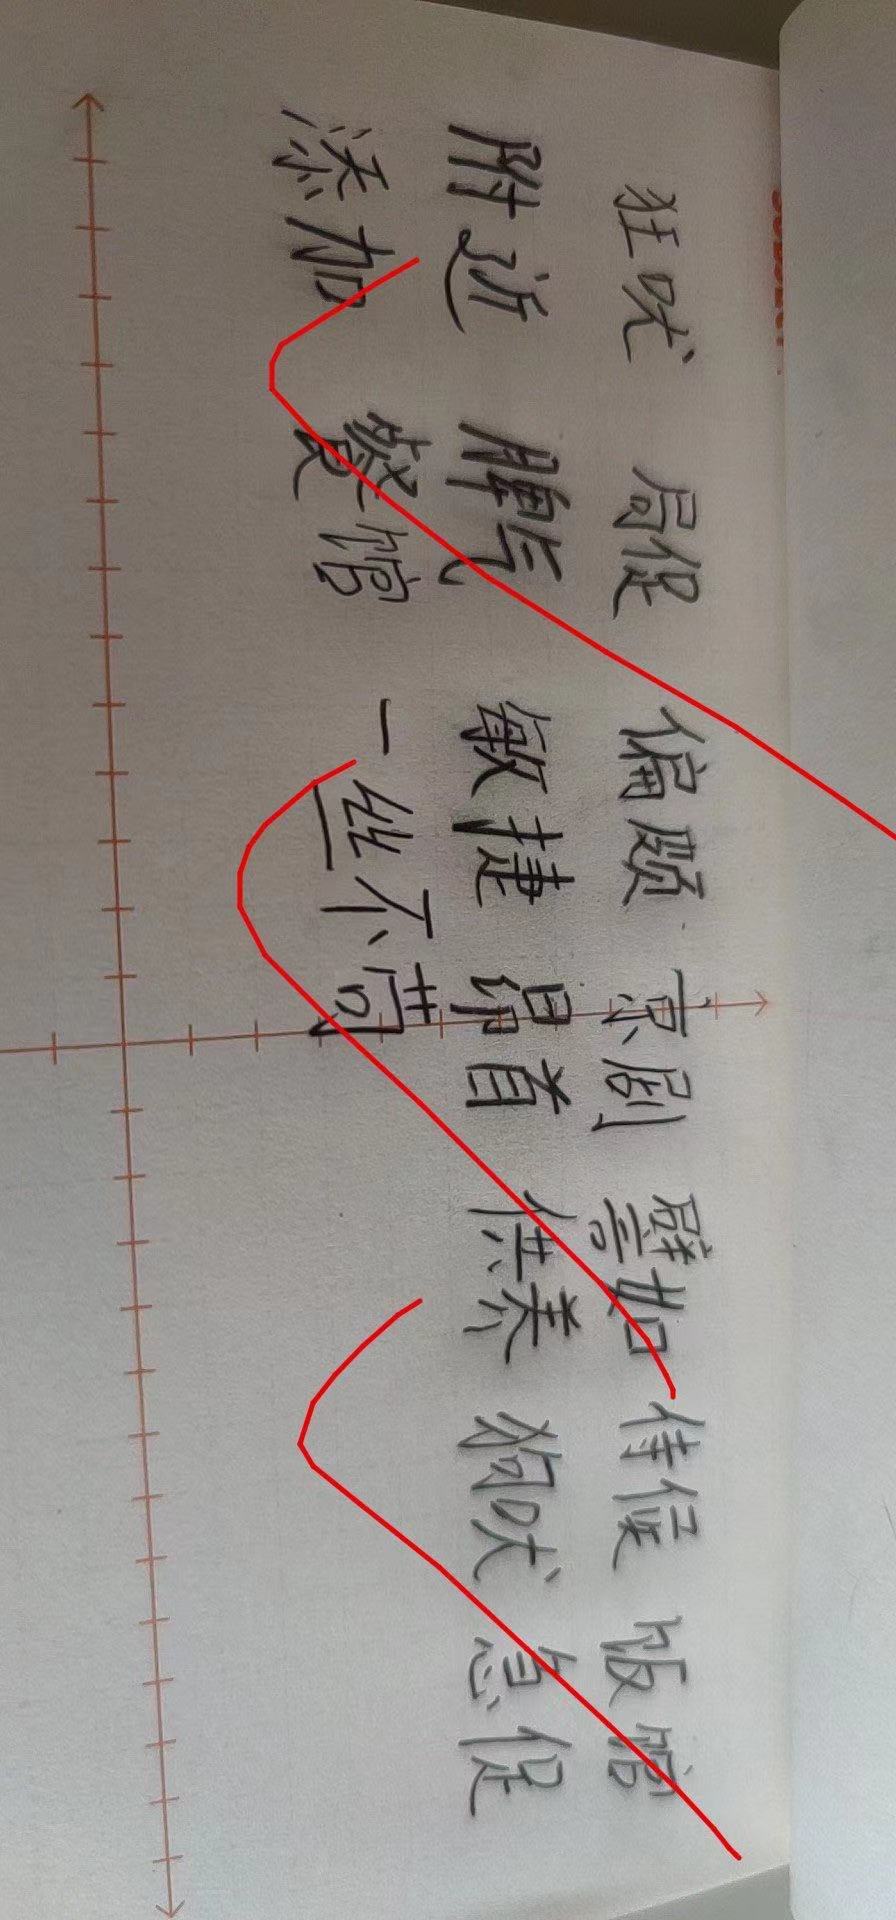 狂吠 局促 偏颇 京剧 譬如 侍候 饭馆
附近 脾气 敏捷 昂首 供养 狗吠 急促
添加 餐馆 一丝不苟